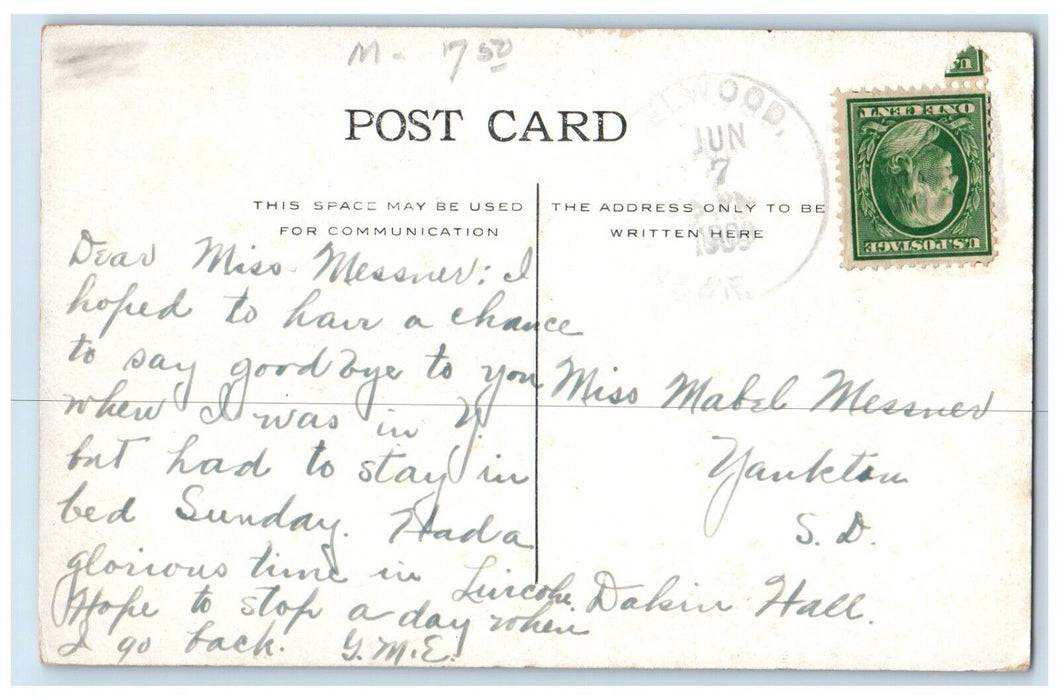 M - 7 50
POST CARD
THIS SPACE MAY BE USED
FOR COMMUNICATION
THE ADDRESS ONLY TO BE
WRITTEN HERE
ELWOOD,
JUN
7
1909
U.S. POSTAGE
ONE CENT
Dear Miss Messner: I
hoped to have a chance
to say good bye to you
when I was in Y.
but had to stay in
bed Sunday. Had a
glorious time in Lincoln.
Hope to stop a day when
I go back. G.M.E.
Miss Mabel Messner
Yankton
S. D.
Dakin Hall.